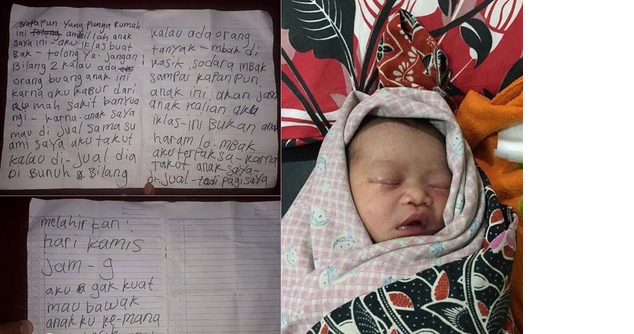 siapapun yang punya rumah
ini tolong ambillah anak
saya ini - aku iklas buat
bak - tolong ya. jangan
Bilang 2 kalau ada
orang buang anak ini
karna aku kabur dari
rumah sakit banyuwa
ngi - karna-anak saya
mau di jual sama su
ami saya aku takut
kalau di-jual dia
Di Bunuh Bilang
kalau ada orang
tanyak - mbak di
kasik sodara mbak
sampai kapan pun.
anak ini akan jadi
anak kalian aku
iklas-ini Bukan anak
haram lo-mbak
aku terpaksa-karna
takut anak saya-
di-jual-tadi pagi saya
melahirkan:
hari kamis
Jam-9
aku gak kuat
mau bawak
anakku ke-mana